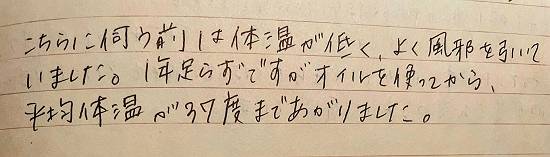 こちらに伺う前は体温が低く、よく風邪を引いて
いました。1年足らずですがオイルを使ってから、
平均体温が37度まであがりました。